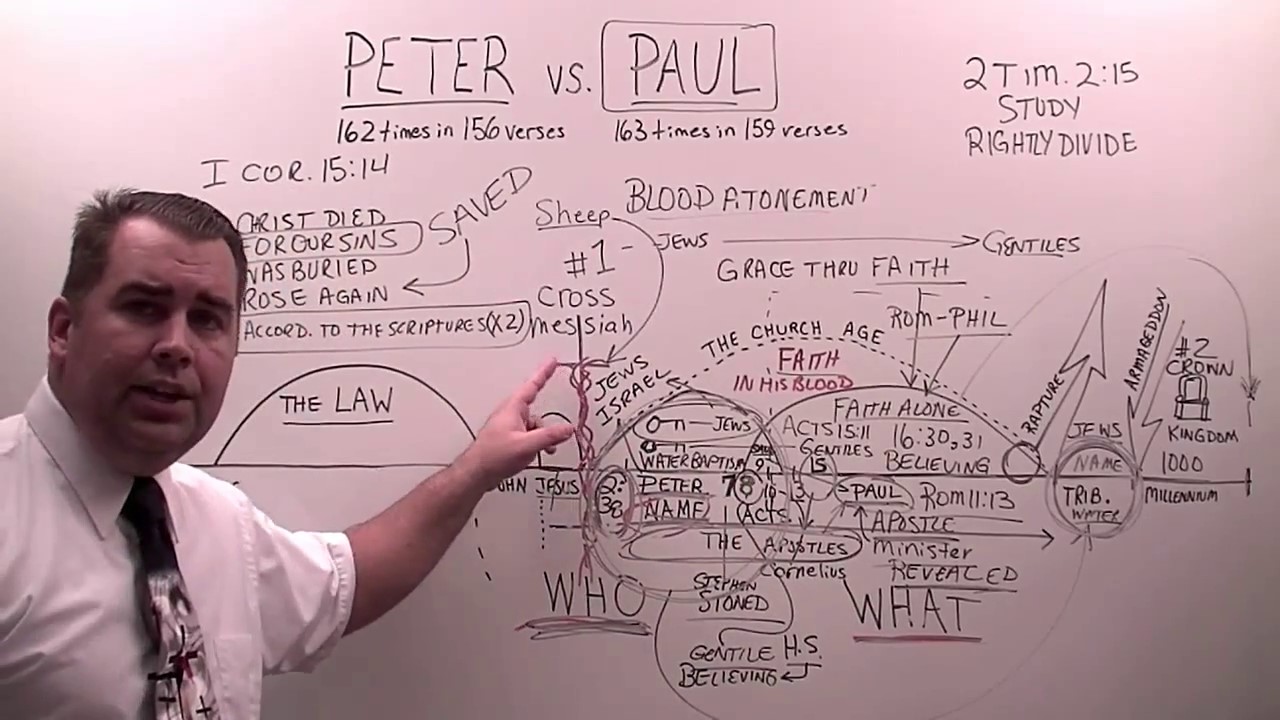 PETER VS. PAUL
162 times in 156 verses
163 times in 159 verses
2 Tim. 2:15
STUDY
RIGHTLY DIVIDE
I COR. 15:14
CHRIST DIED
FOR OUR SINS
WAS BURIED
ROSE AGAIN
ACCORD. TO THE SCRIPTURES (X2)
SAVED
Sheep
#1
Cross
Messiah
BLOOD ATONEMENT
JEWS
GENTILES
GRACE THRU FAITH
ROM-PHIL
THE CHURCH AGE
FAITH
IN HIS BLOOD
THE LAW
JEWS
ISRAEL
JEWS
WATER BAPTISM
FAITH ALONE
ACTS 15:11
GENTILES
16:30,31
BELIEVING
RAPTURE
ARMAGEDDON
#2
CROWN
KINGDOM
1000
MILLENNIUM
JEWS
NAME
TRIB.
WATER
JOHN JESUS
2:
38
PETER
NAME
7
8
9
15
ACTS
PAUL
ROM 11:13
APOSTLE
minister
REVEALED
THE APOSTLES
Cornelius
WHO
WHAT
STEPHEN
STONED
GENTILE H.S.
BELIEVING